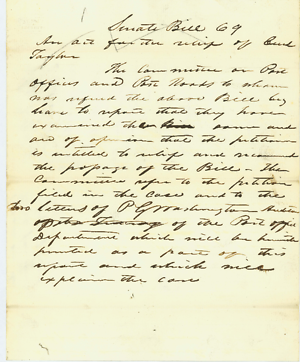 Senate Bill 69
An act for the relief of
Taylor
The Committee on Post
Offices and Post Roads to whom
was referred the above Bill beg
leave to report that they have
examined the same and
are of opinion that the petitioner
is entitled to relief and recommend
the passage of the Bill - The
Committee refer to the petition
filed in the case and to the
two letters of P G Washington Auditor
of the Treasury of the Post office
Department which will be
printed as a part of this
report and which will
explain the case